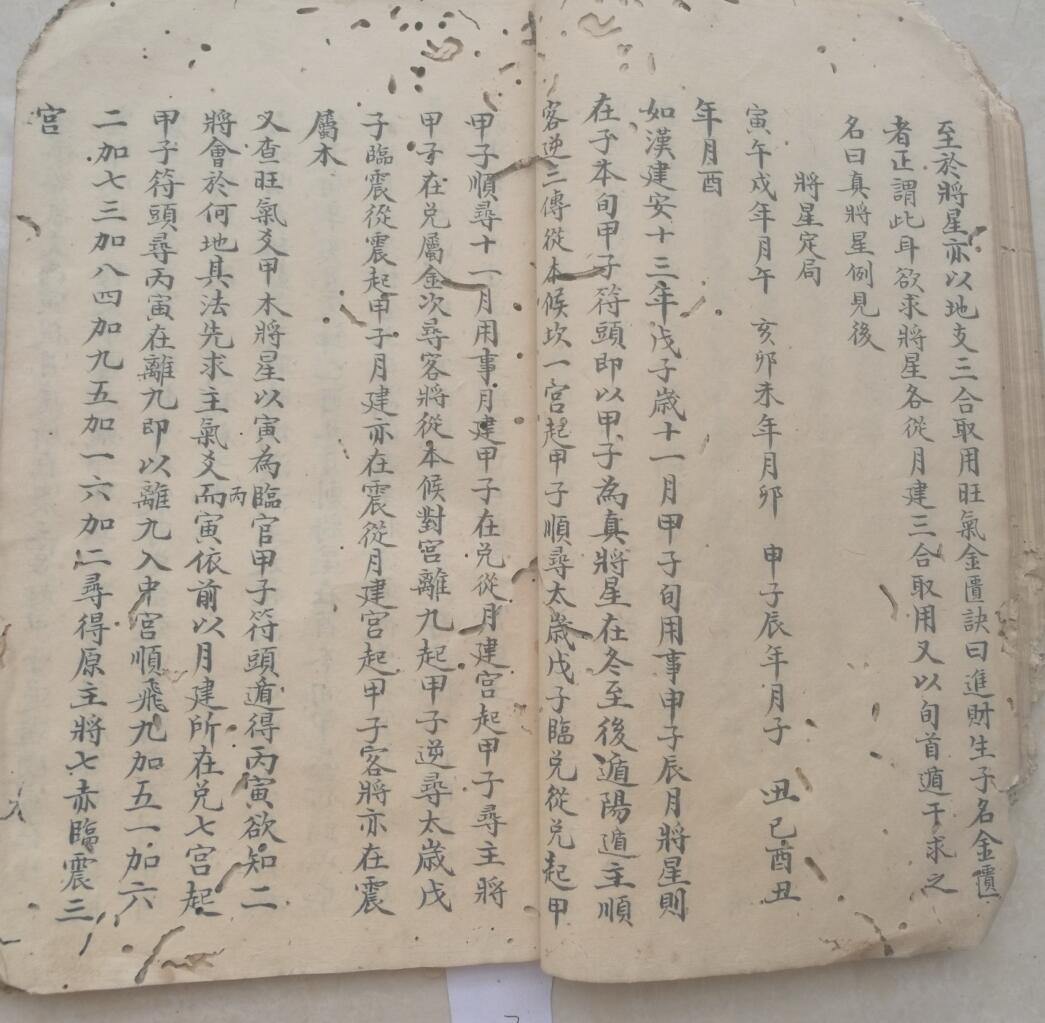 至於將星亦以地支三合取用旺氣金匱訣曰進財生子名金匱
者正謂此耳欲求將星各從月建三合取用又以旬首遁干求之
名曰真將星例見後
將星定局
寅午戌年月午 亥卯未年月卯 申子辰年月子 丑巳酉丑
年月酉
如漢建安十三年戊子歲十一月甲子旬用事申子辰月將星則
在子本旬甲子符頭即以甲子為真將星在冬至後遁陽遁主順
客逆二傳從本候坎一宮起甲子順尋太歲戊子臨兌從兌起甲
甲子順尋十一月用事月建甲子在兌從月建宮起甲子尋主將
甲子在兌屬金次尋客將從本候對宮離九起甲子逆尋太歲戊
子臨震從震起甲子月建亦在震從月建宮起甲子客將亦在震
屬木
又查旺氣爻甲木將星以寅為臨官甲子符頭遁得丙寅欲知二
將會於何地其法先求主氣爻而丙寅依前以月建所在兌七宮起
甲子符頭尋丙寅在離九即以離九入中宮順飛九加五一加六
二加七三加八四加九五加一六加二尋得原主將七赤臨震三
宮